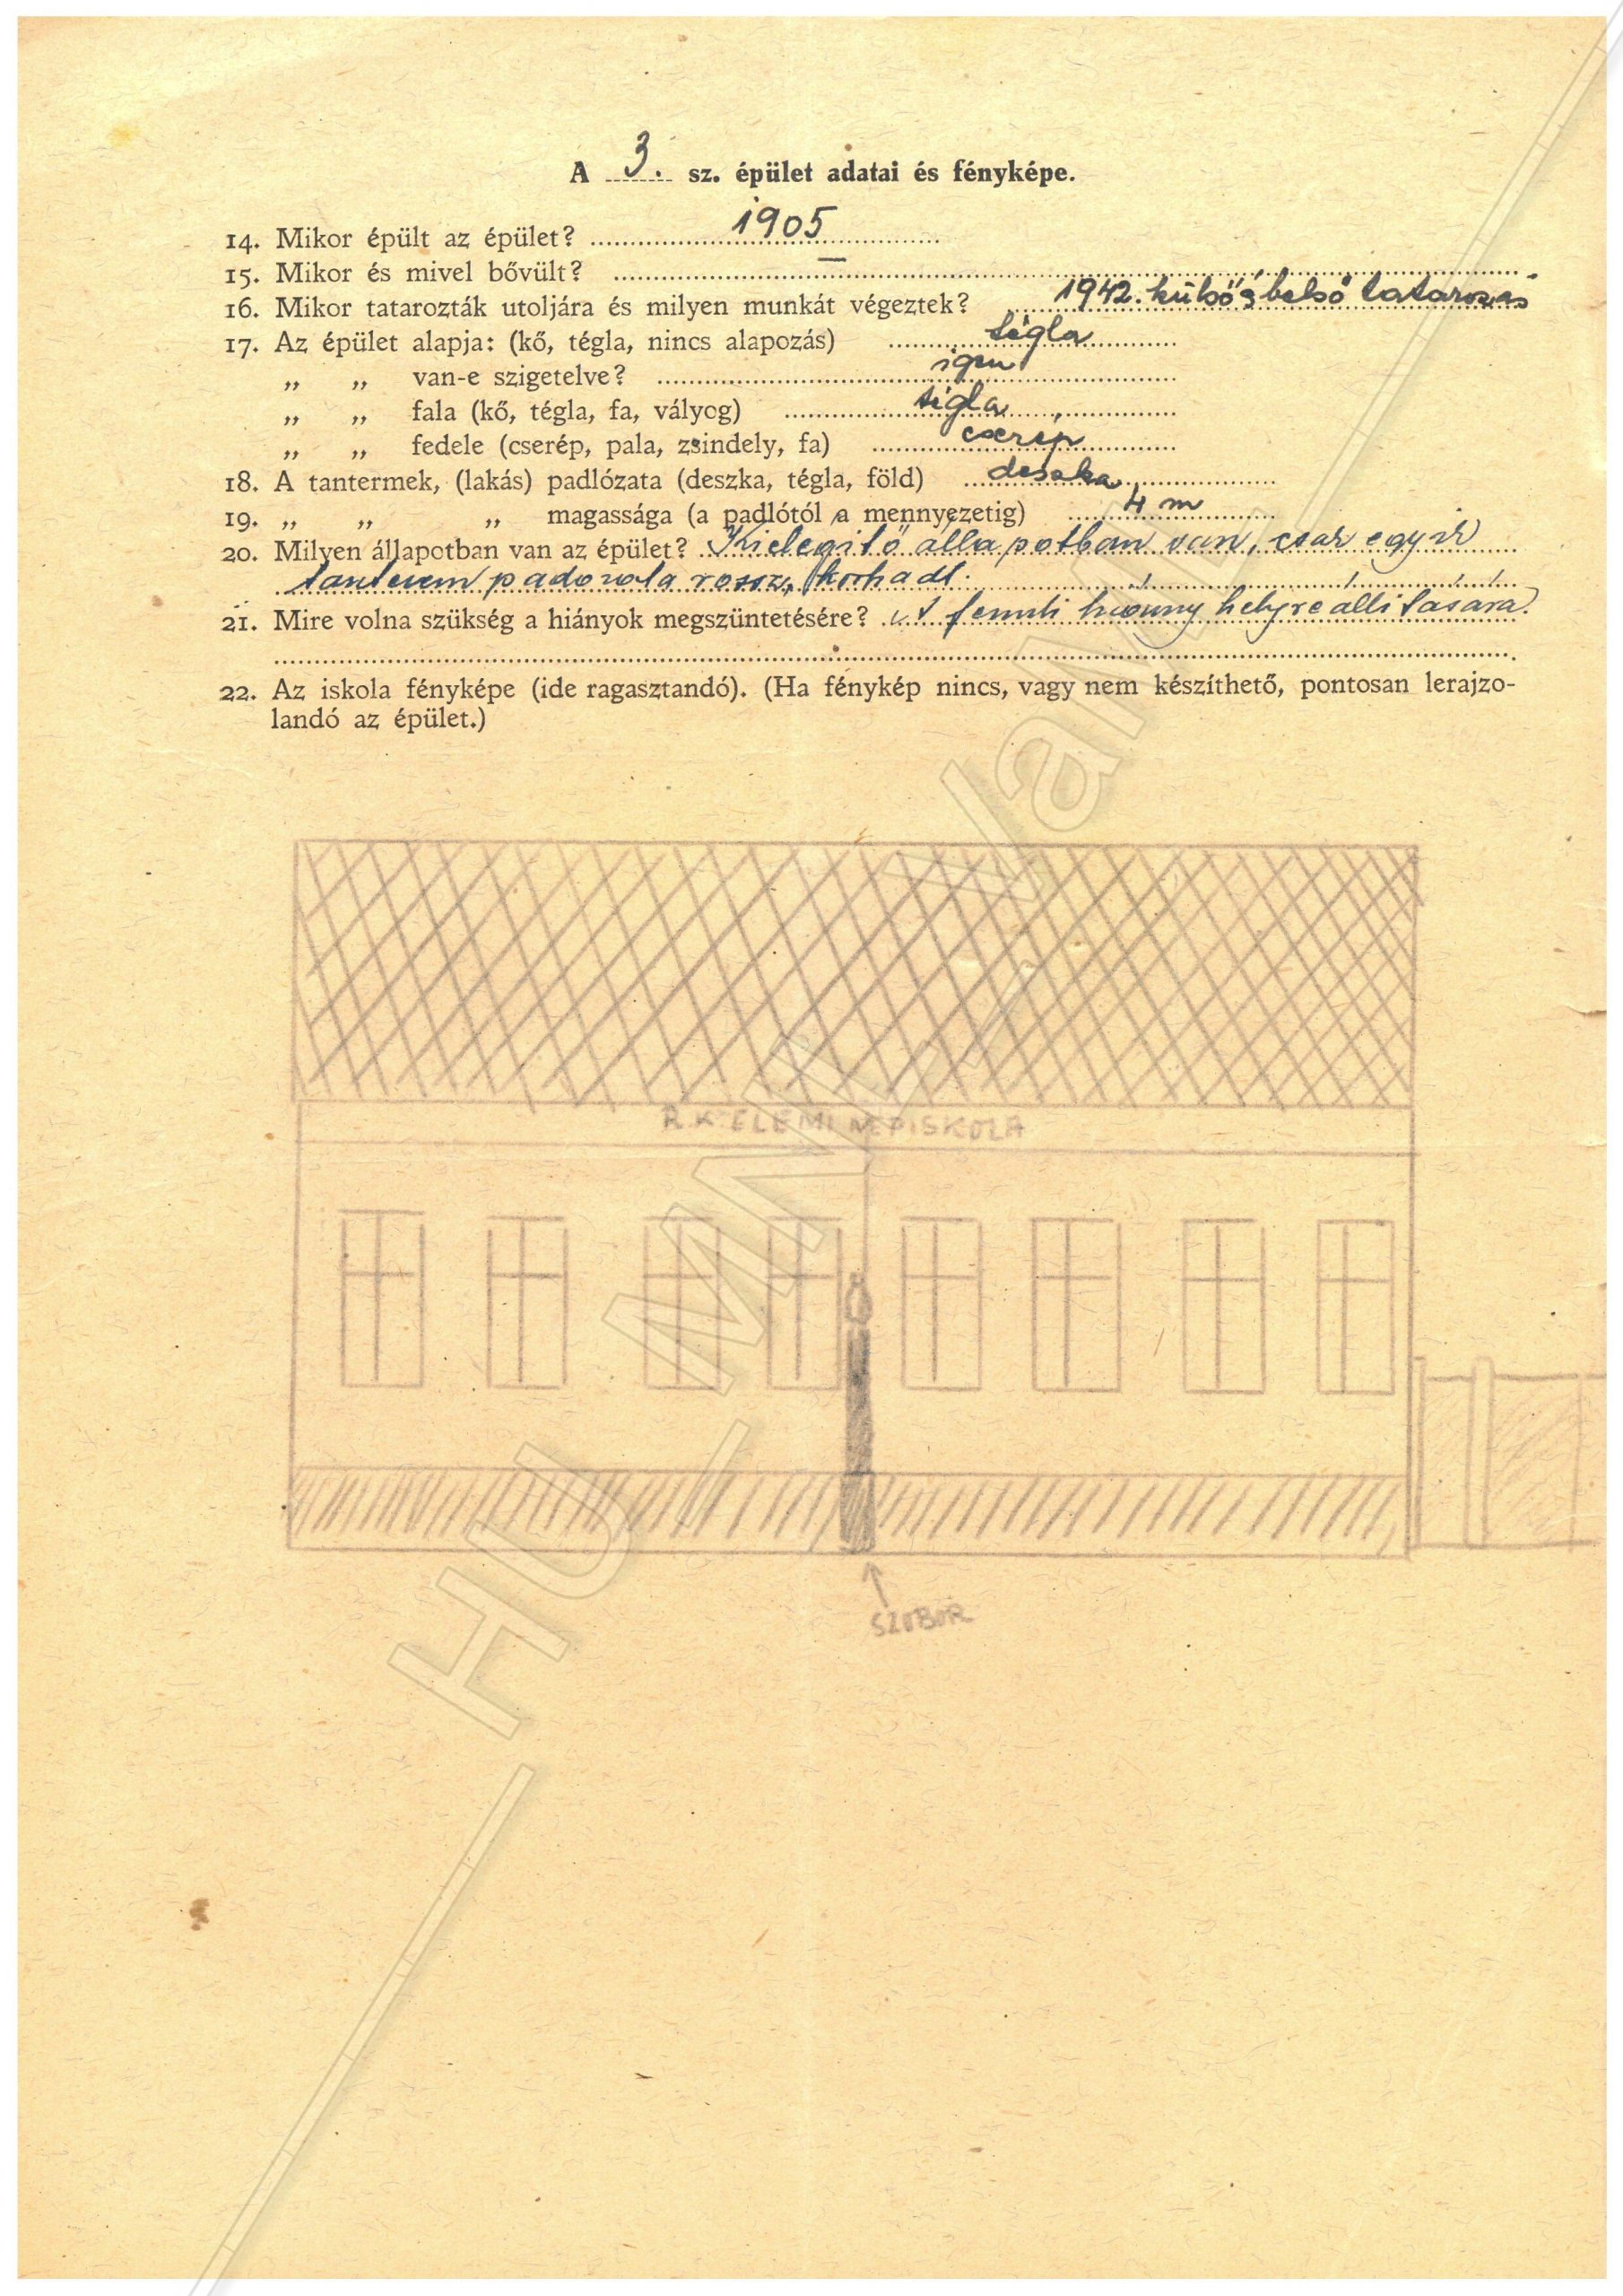 A 3. sz. épület adatai és fényképe.
14. Mikor épült az épület? 1905
15. Mikor és mivel bővült? —
16. Mikor tatarozták utoljára és milyen munkát végeztek? 1942. külső s belső tatarozás
17. Az épület alapja: (kő, tégla, nincs alapozás) tégla
„ „ van-e szigetelve? igen
„ „ fala (kő, tégla, fa, vályog) tégla
„ „ fedele (cserép, pala, zsindely, fa) cserép
18. A tantermek, (lakás) padlózata (deszka, tégla, föld) deszka
19. „ „ „ magassága (a padlótól a mennyezetig) 4 m
20. Milyen állapotban van az épület? Kielégitő állapotban van, csak egyik
tanterem padozata rossz, korhadt.
21. Mire volna szükség a hiányok megszüntetésére? A fennti hiány helyreállitására.
22. Az iskola fényképe (ide ragasztandó). (Ha fénykép nincs, vagy nem készíthető, pontosan lerajzo-
landó az épület.)
R.K. ELEMI NÉPISKOLA
SZOBOR
HU_MNL_VaML